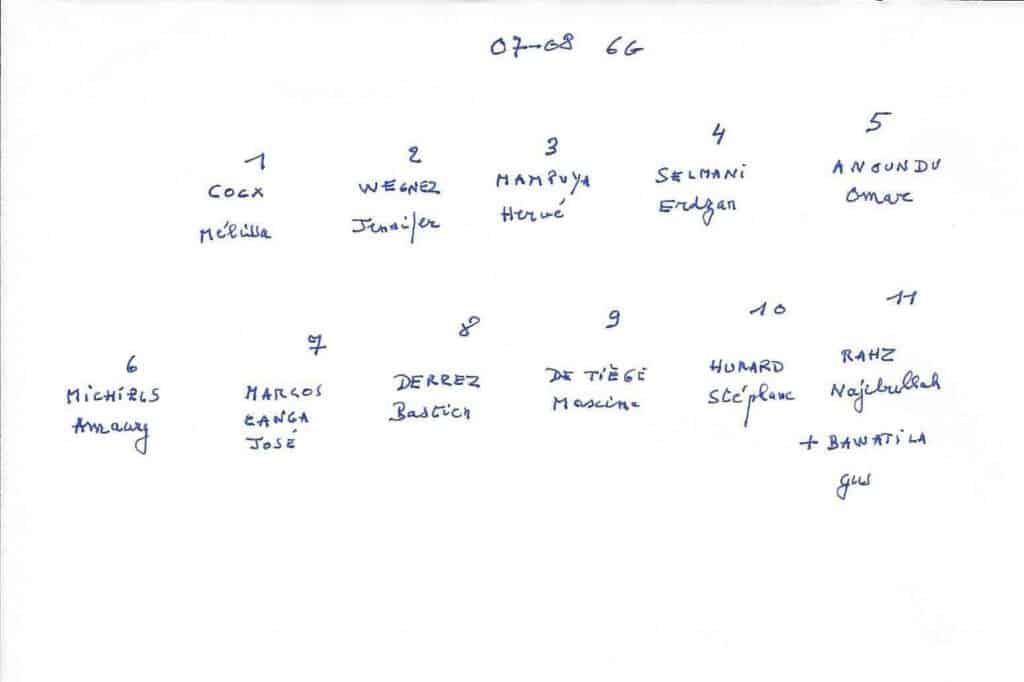 07-08 6G
1 2 3 4 5
COCX WEGNEZ MAMPUYA SELMANI ANOUNDU
Mélissa Jennifer Hervé Erdzan Omar
6 7 8 9 10 11
MICHIELS MARCOS DERREZ DE TIÈGE HUBARD RAHZ
Amaury CANGA Bastien Maxime Stéplane Najebullah
JOSÉ + BAWATILA
Gus